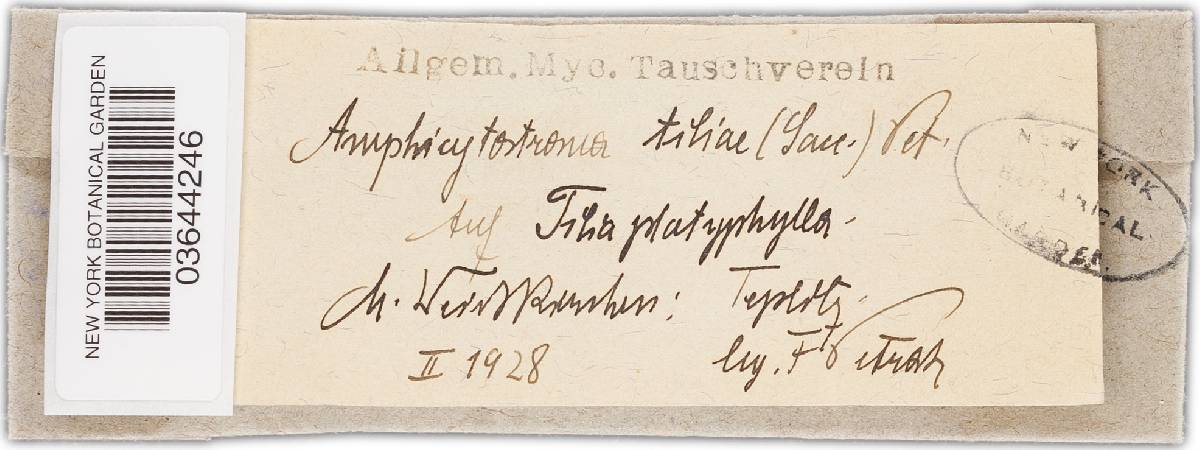 NEW YORK BOTANICAL GARDEN
03644246
Allgem. Myc. Tauschverein
Amphicytostroma tiliae (Sacc.) Pet.
Auf Tilia platyphylla.
M. Weisskirchen: Teplitz.
II 1928 leg. F. Petrak
NEW YORK
BOTANICAL
GARDEN.